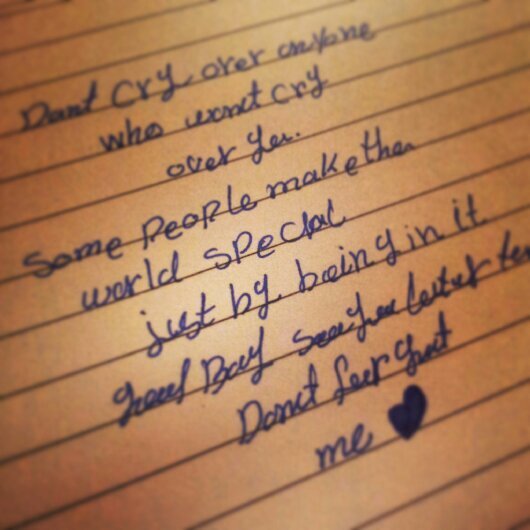 Dont cry over anyone
who wont cry
over you.
Some People make the
world special
just by being in it
good Bay
Donot forget
me ♥